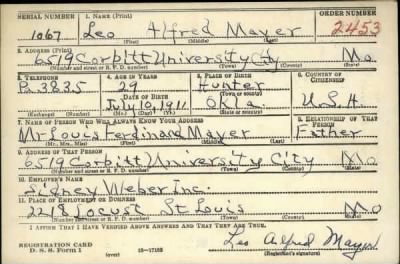 SERIAL NUMBER 1. NAME (Print) ORDER NUMBER
1067 Leo Alfred Mayer 2453
(First) (Middle) (Last)
2. ADDRESS (Print)
6519 Corbitt University City Mo
(Number and street or R. F. D. number) (Town) (County) (State)
3. TELEPHONE 4. AGE IN YEARS 5. PLACE OF BIRTH 6. COUNTRY OF CITIZENSHIP
Pa 3835 29 Hunter
DATE OF BIRTH (Town or county)
July 10, 1911 Okla. U.S.A.
(Mo.) (Day) (Yr.) (State or country)
7. NAME OF PERSON WHO WILL ALWAYS KNOW YOUR ADDRESS 8. RELATIONSHIP OF THAT PERSON
Mr Louis Ferdinand Mayer Father
(Mr., Mrs., Miss) (First) (Middle) (Last)
9. ADDRESS OF THAT PERSON
6519 Corbitt University City Mo
(Number and street or R. F. D. number) (Town) (County) (State)
10. EMPLOYER'S NAME
Sidney Weber Inc.
11. PLACE OF EMPLOYMENT OR BUSINESS
2218 Locust St Louis Mo
(Number and street or R. F. D. number) (Town) (County) (State)
I AFFIRM THAT I HAVE VERIFIED ABOVE ANSWERS AND THAT THEY ARE TRUE.
REGISTRATION CARD
D. S. S. Form 1 (over) 16—17105 Leo Alfred Mayer
(Registrant's signature)